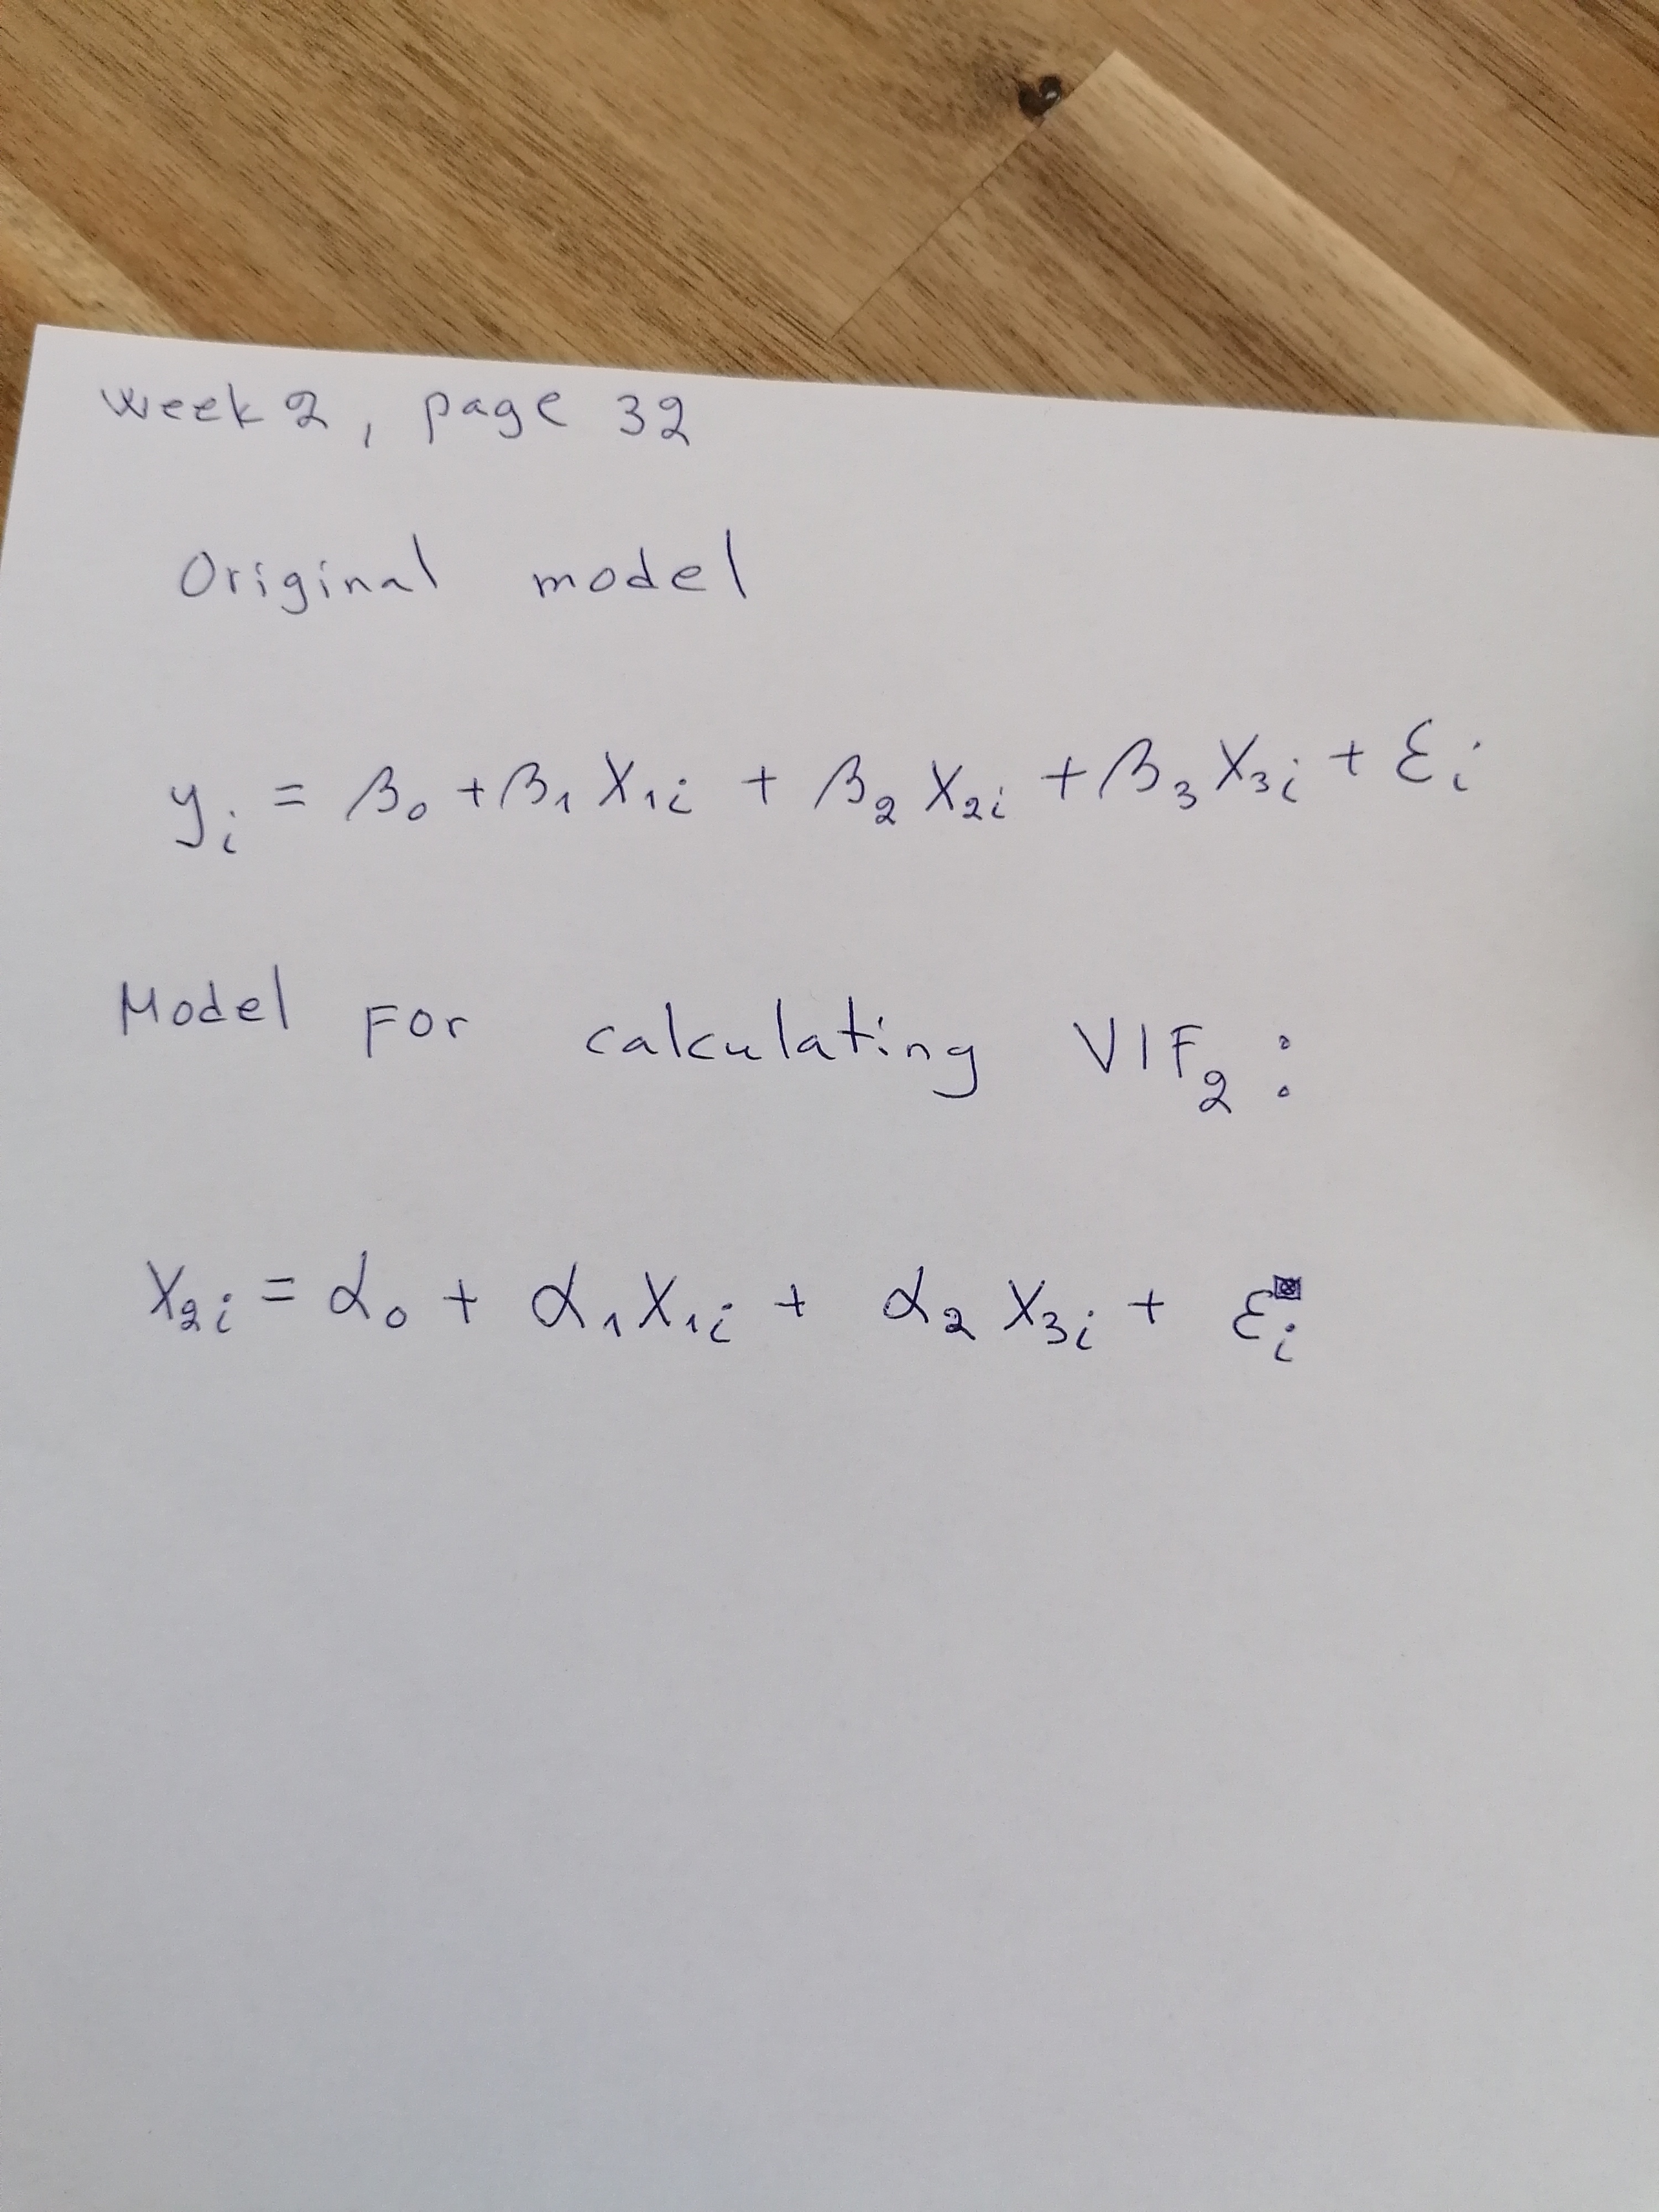 week 2, page 32
Original model
yᵢ = β₀ + β₁ X₁ᵢ + β₂ X₂ᵢ + β₃ X₃ᵢ + εᵢ
Model For calculating VIF₂:
X₂ᵢ = α₀ + α₁ X₁ᵢ + α₂ X₃ᵢ + εᵢ